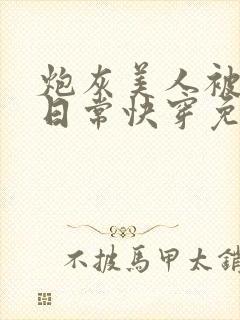 炮灰美人被
日常快穿免
不披馬甲太銷